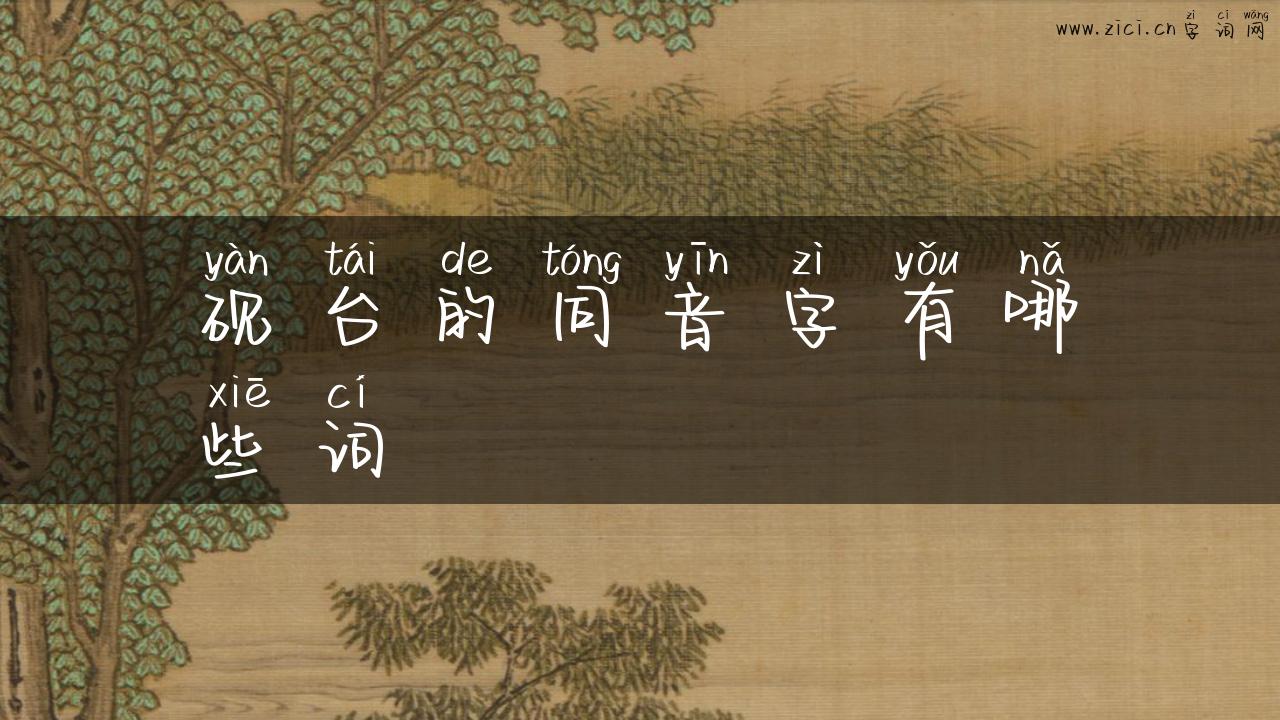 zì cí wǎng
www.zici.cn 字 词 网
yàn tái de tóng yīn zì yǒu nǎ
砚 台 的 同 音 字 有 哪
xiē cí
些 词